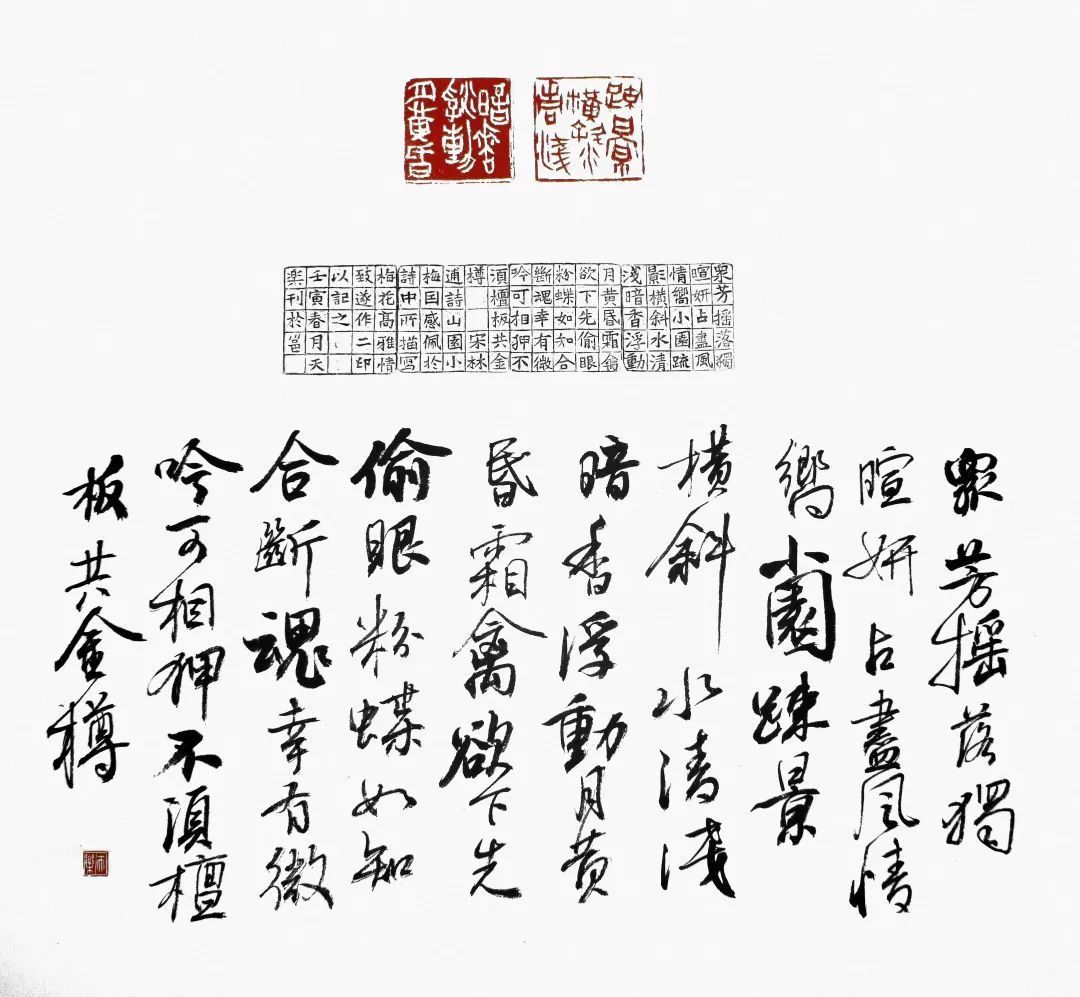 疎景
横斜水
清淺
暗香
浮動
月黄昏
眾芳摇落獨
暄妍占盡風
情嚮小園疏
影横斜水清
淺暗香浮動
月黄昏霜禽
欲下先偷眼
粉蝶如知合
斷魂幸有微
吟可相狎不
須檀板共金
樽 宋林
逋詩山園小
梅囙感佩於
詩中所描寫
梅花高雅情
致遂作二印
以記之
壬寅春月天
樂刊於邕
眾芳摇落獨
暄妍占盡風情
嚮小園疎景
横斜水清淺
暗香浮動月黄
昏霜禽欲下先
偷眼粉蝶如知
合斷魂幸有微
吟可相狎不須檀
板共金樽
天樂